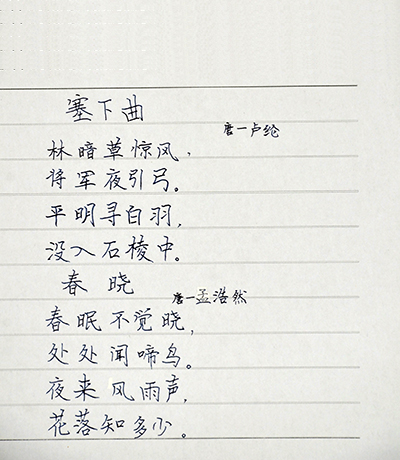 塞下曲
唐一卢纶
林暗草惊风，
将军夜引弓。
平明寻白羽，
没入石棱中。
春晓
唐一孟浩然
春眠不觉晓，
处处闻啼鸟。
夜来风雨声，
花落知多少。